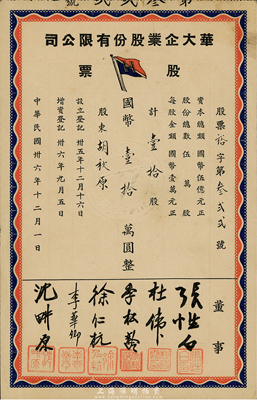 華大企業股份有限公司
股票
股票裕字第叁弍弍號
資本總額 國幣伍億元正
股份總數 伍萬股
每股金額 國幣壹萬元正
計壹拾股
國幣壹拾萬圓整
股東 胡叔原
設立登記 卅五年十二月十六日
增資登記 卅六年九月五日
中華民國卅六年十二月一日
董事
張性白
杜偉
徐仁杭
李華卿